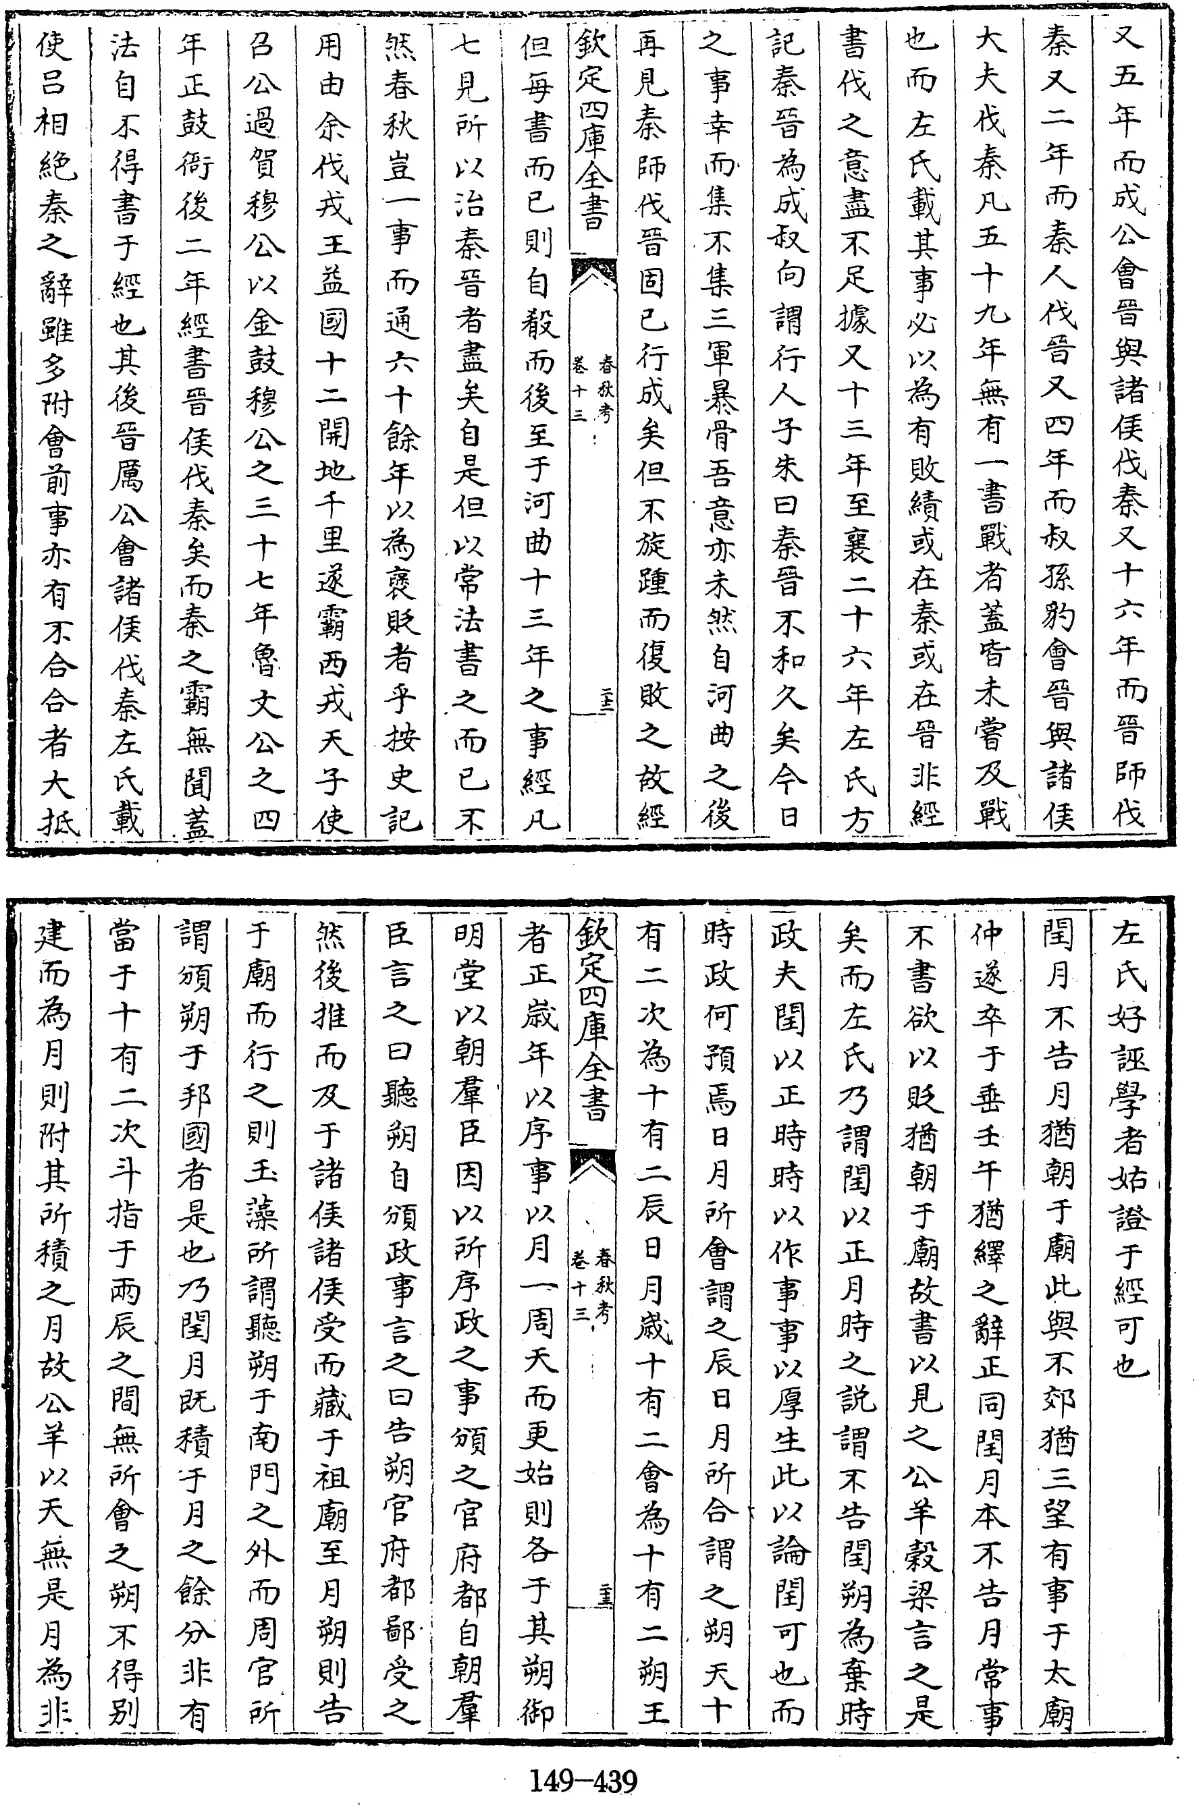 又五年而成公會晉與諸侯伐秦又十六年而晉師伐
秦又二年而秦人伐晉又四年而叔孫豹會晉與諸侯
大夫伐秦凡五十九年無有一書戰者蓋皆未嘗及戰
也而左氏載其事必以為有敗績或在秦或在晉非經
書伐之意盡不足據又十三年至襄二十六年左氏方
記秦晉為成叔向謂行人子朱曰秦晉不和久矣今日
之事幸而集不集三軍暴骨吾意亦未然自河曲之後
再見秦師伐晉固已行成矣但不旋踵而復敗之故經
欽定四庫全書
春秋考
卷十三
二十二
但每書而已則自殽而後至于河曲十三年之事經凡
七見所以治秦晉者盡矣自是但以常法書之而已不
然春秋豈一事而通六十餘年以為褒貶者乎按史記
用由余伐戎王益國十二開地千里遂霸西戎天子使
召公過賀穆公以金鼓穆公之三十七年魯文公之四
年正鼓衙後二年經書晉侯伐秦矣而秦之霸無聞蓋
法自不得書于經也其後晉厲公會諸侯伐秦左氏載
使呂相絕秦之辭雖多附會前事亦有不合合者大抵
左氏好誣學者姑證于經可也
閏月不告月猶朝于廟此與不郊猶三望有事于太廟
仲遂卒于垂壬午猶繹之辭正同閏月本不告月常事
不書欲以貶猶朝于廟故書以見之公羊穀梁言之是
矣而左氏乃謂閏以正月時之説謂不告閏朔為棄時
政夫閏以正時時以作事事以厚生此以論閏可也而
時政何預焉日月所會謂之辰日月所合謂之朔天十
有二次為十有二辰日月歲十有二會為十有二朔王
欽定四庫全書
春秋考
卷十三
二十三
者正歲年以序事以月一周天而更始則各于其朔御
明堂以朝羣臣因以所序政之事頒之官府都自朝羣
臣言之曰聽朔自頒政事言之曰告朔官府都鄙受之
然後推而及于諸侯諸侯受而藏于祖廟至月朔則告
于廟而行之則玉藻所謂聽朔于南門之外而周官所
謂頒朔于邦國者是也乃閏月既積于月之餘分非有
當于十有二次斗指于兩辰之間無所會之朔不得別
建而為月則附其所積之月故公羊以天無是月為非
149-439